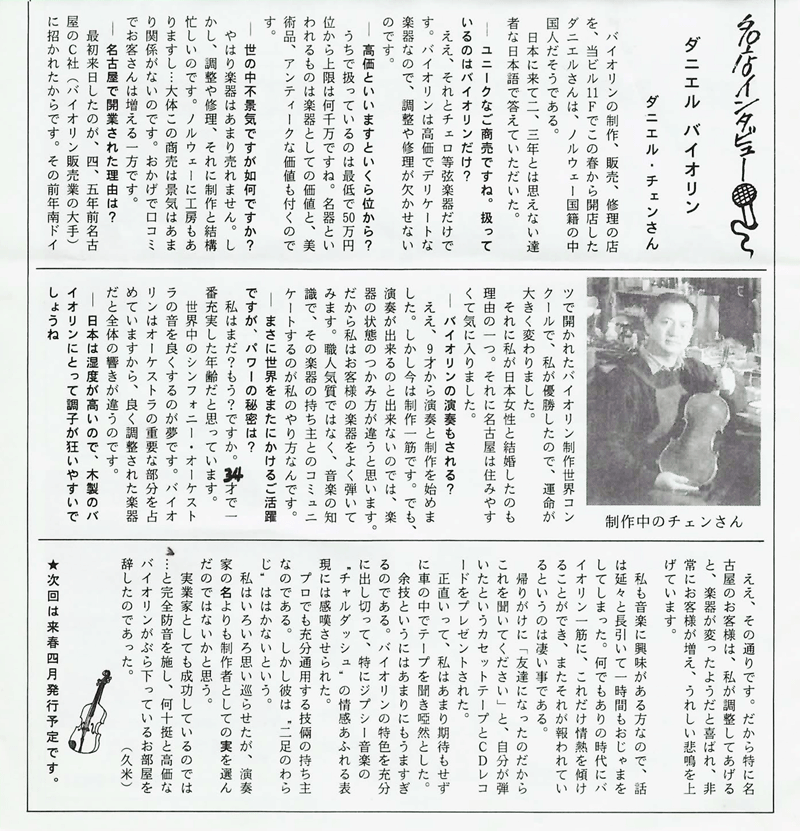 名店インタビュー
ダニエル バイオリン
ダニエル・チェンさん
バイオリンの制作、販売、修理の店
を、当ビル11Fでこの春から開店した
ダニエルさんは、ノルウェー国籍の中
国人だそうである。
日本に来て二、三年とは思えない達
者な日本語で答えていただいた。
― ユニークなご商売ですね。扱って
いるのはバイオリンだけ?
ええ、それとチェロ等弦楽器だけで
す。バイオリンは高価でデリケートな
楽器なので、調整や修理が欠かせない
のです。
― 高価といいますといくら位から?
うちで扱っているのは最低で50万円
位から上限は何千万ですね。名器とい
われるものは楽器としての価値と、美
術品、アンティークな価値も付くので
す。
― 世の中不景気ですが如何ですか?
やはり楽器はあまり売れません。し
かし、調整や修理、それに制作と結構
忙しいのです。ノルウェーに工房もあ
りますし…大体この商売は景気はあま
り関係がないのです。おかげで口コミ
でお客さんは増える一方です。
― 名古屋で開業された理由は?
最初来日したのが、四、五年前名古
屋のC社(バイオリン販売業の大手)
に招かれたからです。その前年南ドイ
制作中のチェンさん
ツで開かれたバイオリン制作世界コン
クールで、私が優勝したので、運命が
大きく変わりました。
それに私が日本女性と結婚したのも
理由の一つ。それに名古屋は住みやす
くて気に入りました。
― バイオリンの演奏もされる?
ええ、9才から演奏と制作を始めま
した。しかし今は制作一筋です。でも、
演奏が出来るのと出来ないのでは、楽
器の状態のつかみ方が違うと思います。
だから私はお客様の楽器をよく弾いて
みます。職人気質ではなく、音楽の知
識で、その楽器の持ち主とのコミュニ
ケートするのが私のやり方なんです。
― まさに世界をまたにかけるご活躍
ですが、パワーの秘密は?
私はまだ?もう?ですか。34才で一
番充実した年齢だと思っています。
世界中のシンフォニー・オーケスト
ラの音を良くするのが夢です。バイオ
リンはオーケストラの重要な部分を占
めていますから、良く調整された楽器
だと全体の響きが違うのです。
― 日本は湿度が高いので、木製のバ
イオリンにとって調子が狂いやすいで
しょうね
ええ、その通りです。だから特に名
古屋のお客様は、私が調整してあげる
と、楽器が変ったようだと喜ばれ、非
常にお客様が増え、うれしい悲鳴を上
げています。
私も音楽に興味がある方なので、話
は延々と長引いて一時間もおじゃまを
してしまった。何でもありの時代にバ
イオリン一筋に、これだけ情熱を傾け
ることができ、またそれが報われてい
るというのは凄い事である。
帰りがけに「友達になったのだから
これを聞いてください」と、自分が弾
いたというカセットテープとCDレコ
ードをプレゼントされた。
正直いって、私はあまり期待もせず
に車の中でテープを聞き啞然とした。
余技というにはあまりにもうますぎ
るのである。バイオリンの特色を充分
に出し切って、特にジプシー音楽の
"チャルダッシュ"の情感あふれる表
現には感嘆させられた。
プロでも充分通用する技倆の持ち主
なのである。しかし彼は"二足のわら
じ"ははかないという。
私はいろいろ思い巡らせたが、演奏
家の名よりも制作者としての実を選ん
だのではないかと思う。
実業家としても成功しているのでは
…と完全防音を施し、何十挺と高価な
バイオリンがぶら下っているお部屋を
辞したのであった。
(久米)
★次回は来春四月発行予定です。